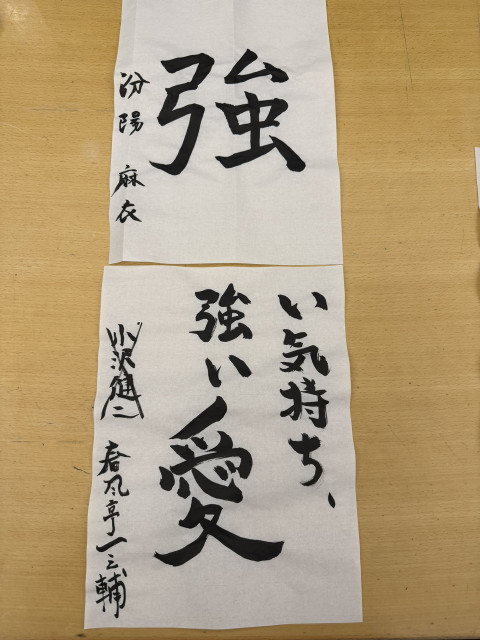 強
汾陽 麻衣
い気持ち、
強い愛
小沢健二
春風亭一之輔